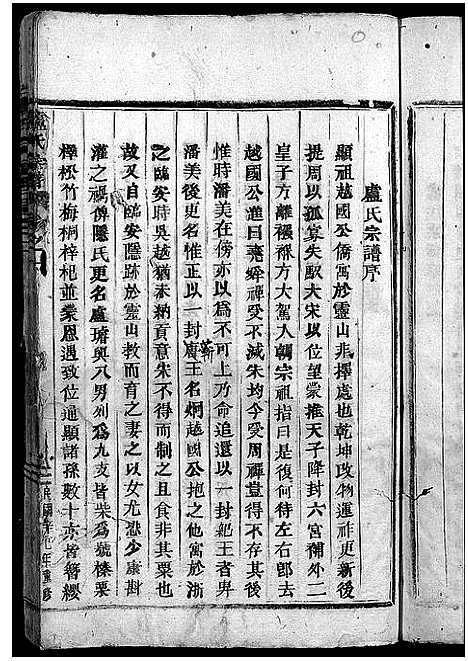 盧氏宗譜序
顯祖越國公僑寓於靈山非擇處也乾坤改物運祚更新後
提周以孤寡失馭大宋以位望蒙推天子降封六宮補外二
皇子方離襁褓方大駕人朝宗祖指曰是復何待左右卽去
越國公進曰堯舜禪受不滅朱均今受周禪豈得不存其後
惟時潘美在傍亦以爲不可上乃命追還以一封紀王者畀
潘美後更名惟正以一封蘄王名炯越國公抱之他寓於浙
之臨安時吳越猶未納貢意宋不得而制之且食非其粟也
故又自臨安隱跡於靈山教而育之妻之以女尤恐少康斟
灌之禍倂隱氏更名盧璿與八男列爲九支皆柴爲號榛栗
樺松竹梅桐梓杞並蒙恩遇致位通顯諸孫數十亦皆簪纓
盧氏宗譜
民國 年重修